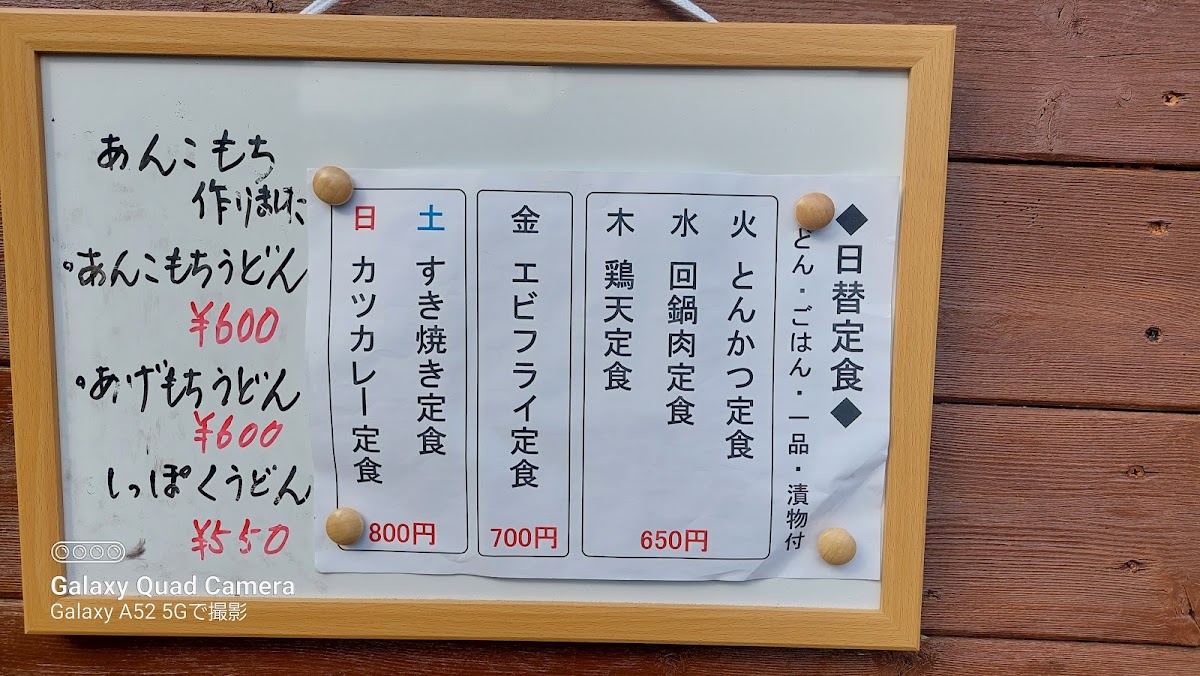 あんこもち
作りました
・あんこもちうどん
¥600
・あげもちうどん
¥600
しっぽくうどん
¥550
◆日替定食◆
どん・ごはん・一品・漬物付
火 とんかつ定食
水 回鍋肉定食
木 鶏天定食
650円
金 エビフライ定食
700円
土 すき焼き定食
日 カツカレー定食
800円
Galaxy Quad Camera
Galaxy A52 5Gで撮影